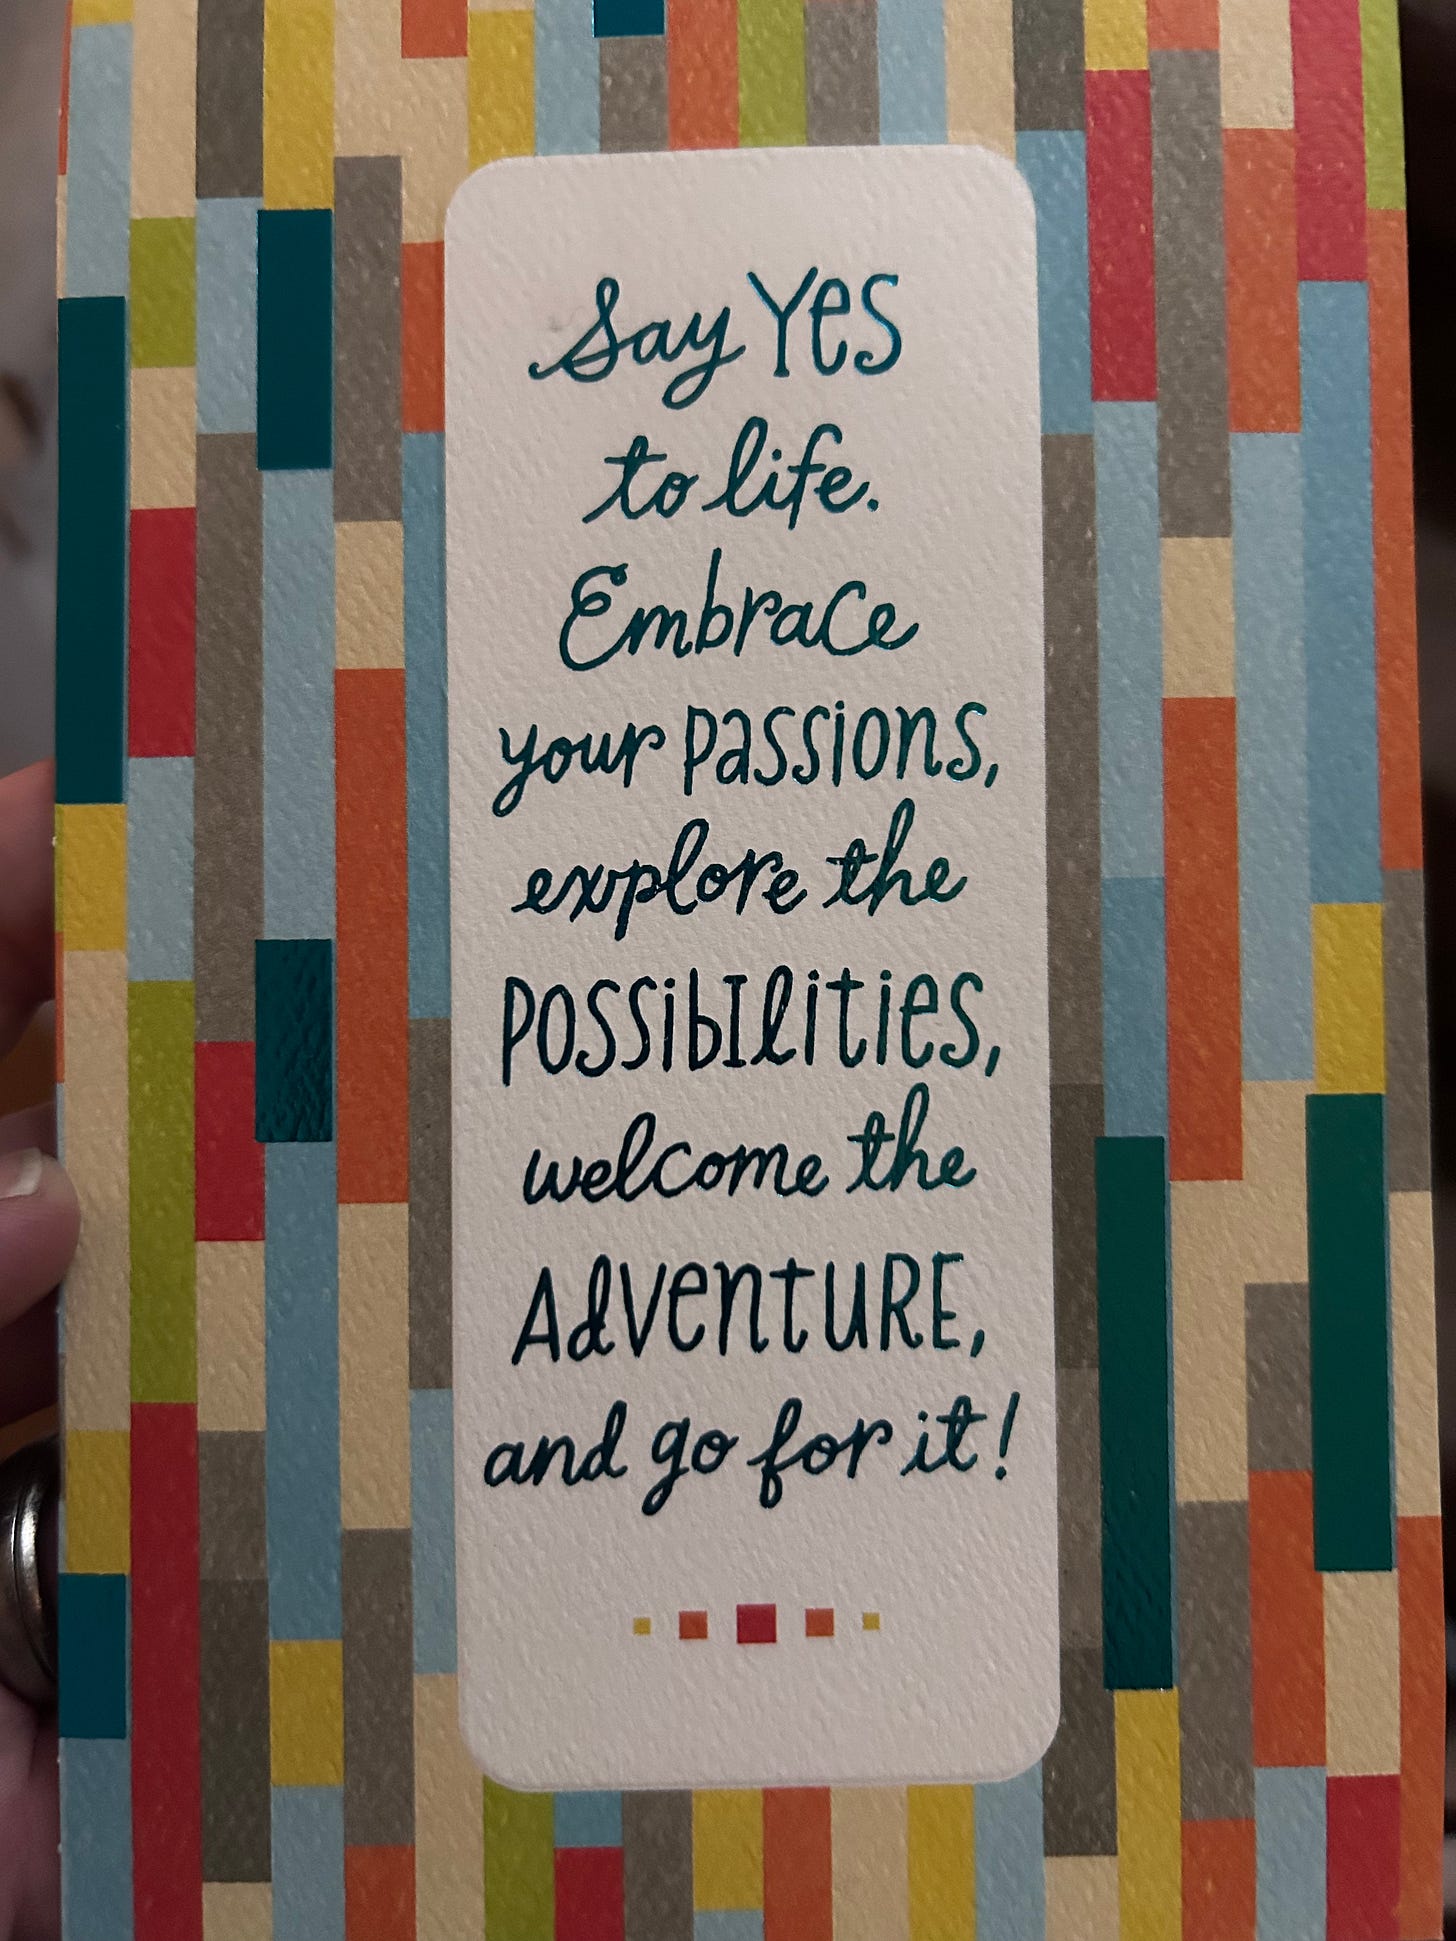 Say Yes
to life.
Embrace
your passions,
explore the
possibilities,
welcome the
AdventuRE,
and go for it!